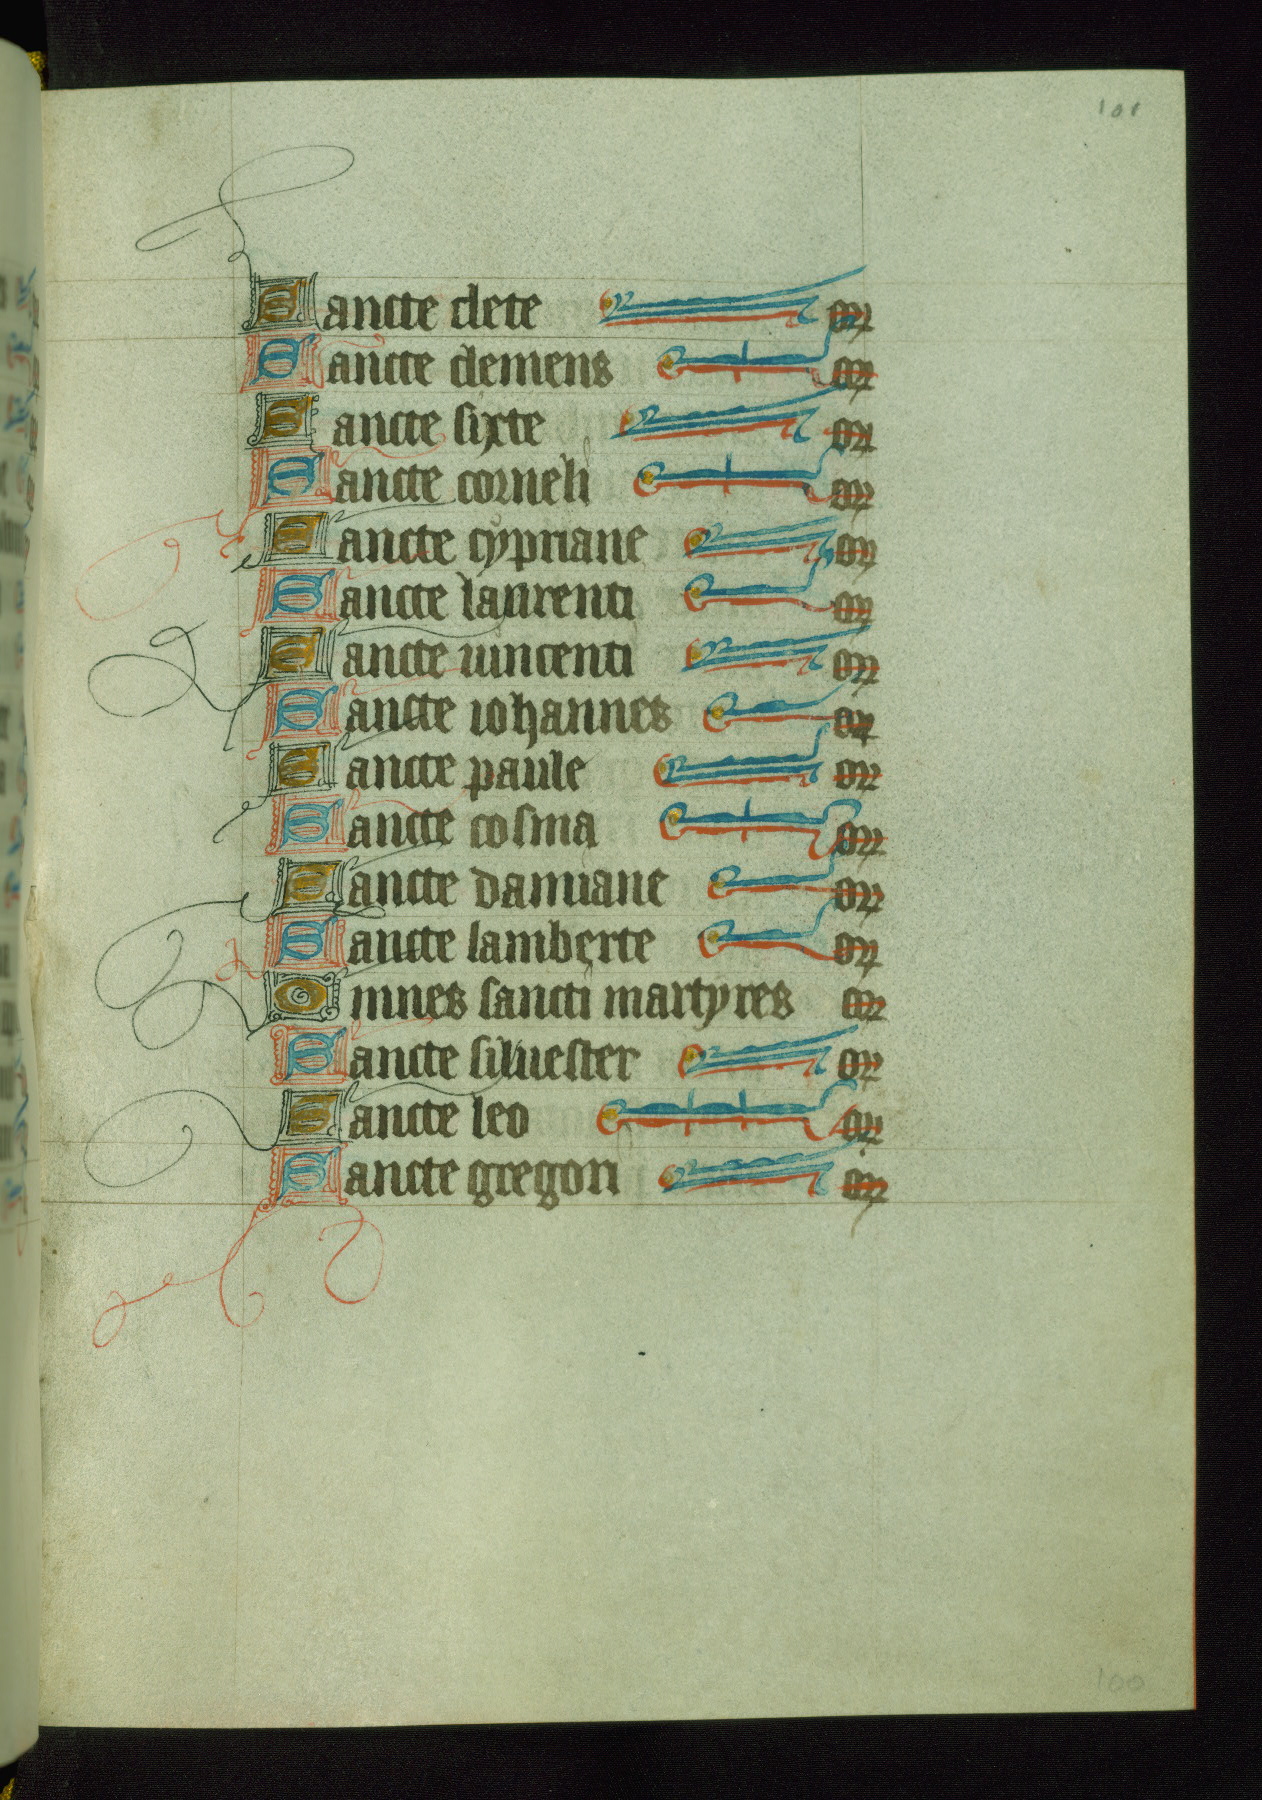 101
Sancte clete or
Sancte clemens or
Sancte sixte or
Sancte corneli or
Sancte cypriane or
Sancte laurenti or
Sancte uincenti or
Sancte iohannes or
Sancte paule or
Sancte cosma or
Sancte damiane or
Sancte lamberte or
Omnes sancti martyres or
Sancte siluester or
Sancte leo or
Sancte gregori or
100